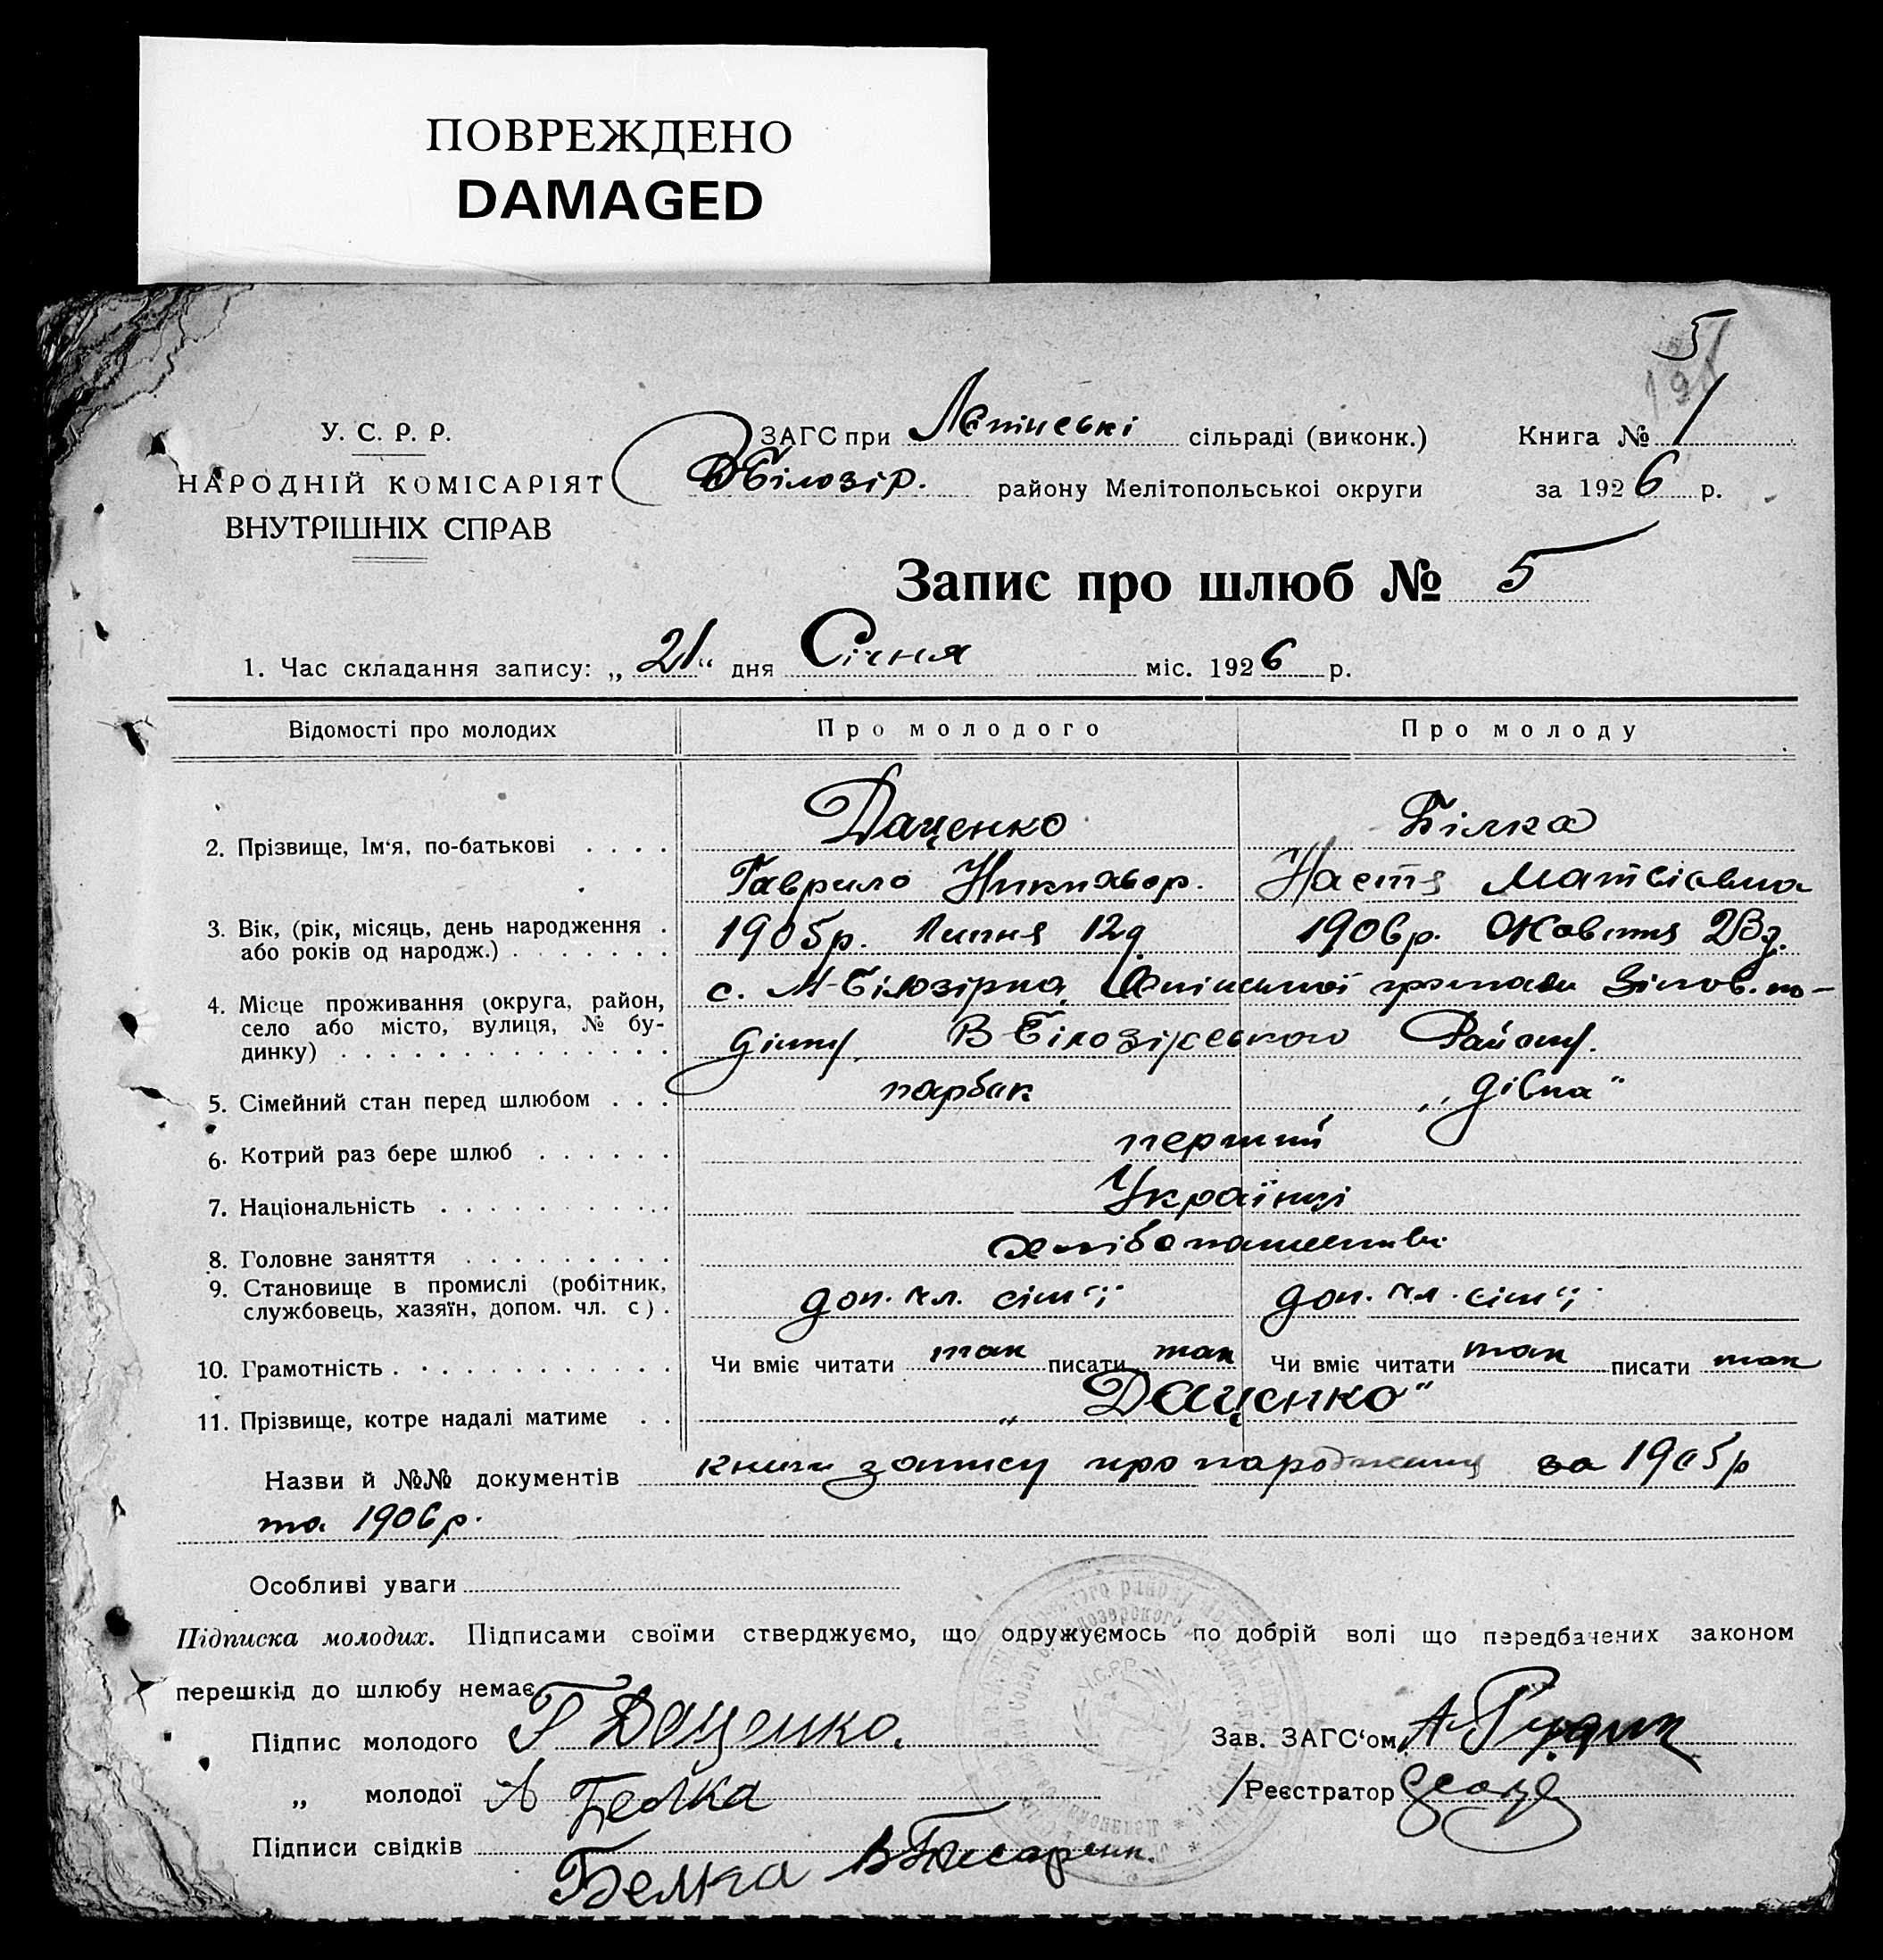 ПОВРЕЖДЕНО
DAMAGED
5
У. С. Р. Р.
НАРОДНІЙ КОМІСАРІЯТ
ВНУТРІШНІХ СПРАВ
ЗАГС при сільраді (виконк.) Книга № 1
Білозір. району Мелітопольської округи за 1926 р.
Запис про шлюб № 5
1. Час складання запису: „21“ дня Січня міс. 1926 р.
Відомості про молодих Про молодого Про молоду
2. Прізвище, Ім‘я, по-батькові Даценко Білка
Гаврило Никифор. Настя Матвіівна
3. Вік, (рік, місяць, день народження
або років од народж.) 1905р. Липня 12д 1906р. Жовтня 23д.
4. Місце проживання (округа, район,
село або місто, вулиця, № бу-
динку) с. М-Білозірка громади
В Білозірського Району.
5. Сімейний стан перед шлюбом парбак „дівка“
6. Котрий раз бере шлюб перший
7. Національність Українці
8. Головне заняття
9. Становище в промислі (робітник,
службовець, хазяїн, допом. чл. с) доп. чл. сім“ї доп. чл. сім“ї
10. Грамотність Чи вміє читати так писати так Чи вміє читати так писати так
11. Прізвище, котре надалі матиме „Даценко“
Назви й №№ документів книги запису про народження за 1905р
та 1906р.
Особливі уваги
Підписка молодих. Підписами своїми стверджуємо, що одружуємось по добрій волі що передбачених законом
перешкід до шлюбу немає.
Підпис молодого Г Даценко. Зав. ЗАГС‘ом
„ молодої А Белка Реєстратор
Підписи свідків
Белка
У.С.Р.Р.